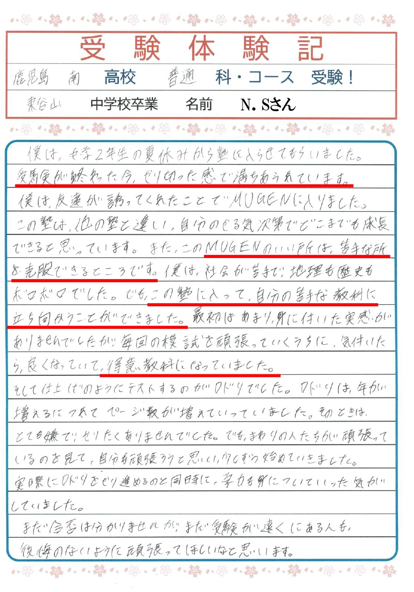 受験体験記
鹿児島 南 高校 普通 科・コース 受験！
東谷山 中学校卒業 名前 N.Sさん
僕は、中学2年生の夏休みから塾に入らせてもらいました。
受験が終わった今、やり切った感で満ちあふれています。
僕は、友達が誘ってくれたことでMUGENに入りました。
この塾は、他の塾と違い、自分のやる気次第でどこまでも成長
できると思っています。また、このMUGENのいい所は、苦手な所
を克服できるところです。僕は、社会が苦手で、地理も歴史も
ボロボロでした。でも、この塾に入って、自分の苦手な教科に
立ち向かうことができました。最初はあまり、身に付いた実感が
ありませんでしたが毎回の模試を頑張っていくうちに、気付いた
ら、良くなっていて、得意教科になっていました。
そして仕上げのようにテストするのがウドリでした。ウドリは、年が
増えるにつれてページ数が増えていっていました。そのときは、
とても嫌で、やりたくありませんでした。でも、まわりの人たちが頑張って
いるのを見て、自分も頑張ろうと思い、少しずつ始めていきました。
実際にウドリをやり進めるのと同時に、学力も身についていった気が
していました。
まだ合否は分かりませんが、まだ受験が遠くにある人も、
後悔のないように頑張ってほしいなと思います。